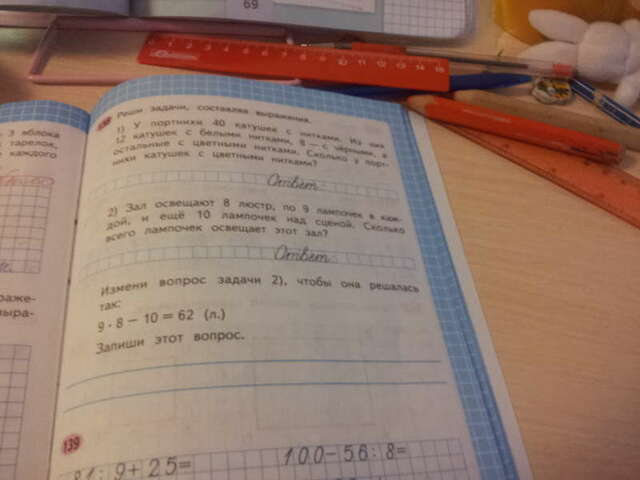 69
1 2 3 4 5 6 7 8 9 10 11 12 13 14 15
3 яблока
тарелок,
каждого
Реши задачи, составляя выражения.
1) У портнихи 40 катушек с нитками. Из них
12 катушек с белыми нитками, 8 — с чёрными, а
остальные с цветными нитками. Сколько у порт-
нихи катушек с цветными нитками?
Ответ:
2) Зал освещают 8 люстр, по 9 лампочек в каж-
дой, и ещё 10 лампочек над сценой. Сколько
всего лампочек освещает этот зал?
Ответ:
Измени вопрос задачи 2), чтобы она решалась
так:
9 · 8 − 10 = 62 (л.)
Запиши этот вопрос.
раже-
выра-
139
81 : 9 + 25 =
100 − 56 : 8 =